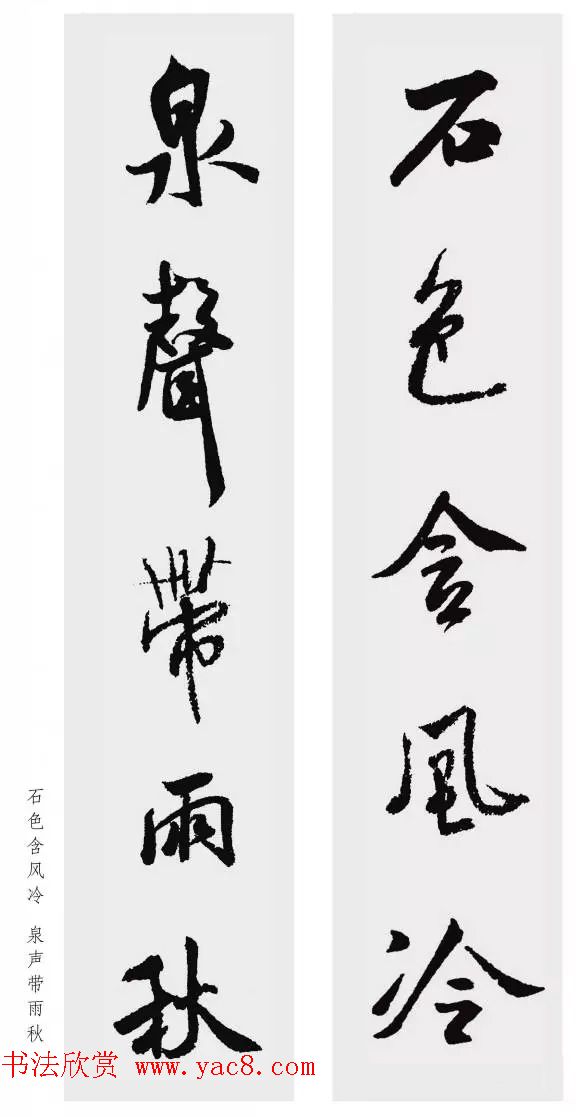 石色含風冷
泉聲帶雨秋
石色含风冷 泉声带雨秋
书法欣赏 www.yac8.com